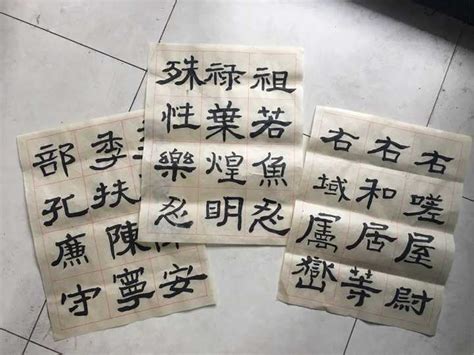 右嗟屋尉
右和居等
右域屬嶽
祖若魚忍
禄葉煌明
殊性樂忍
安
季扶陳寧
部孔廉守